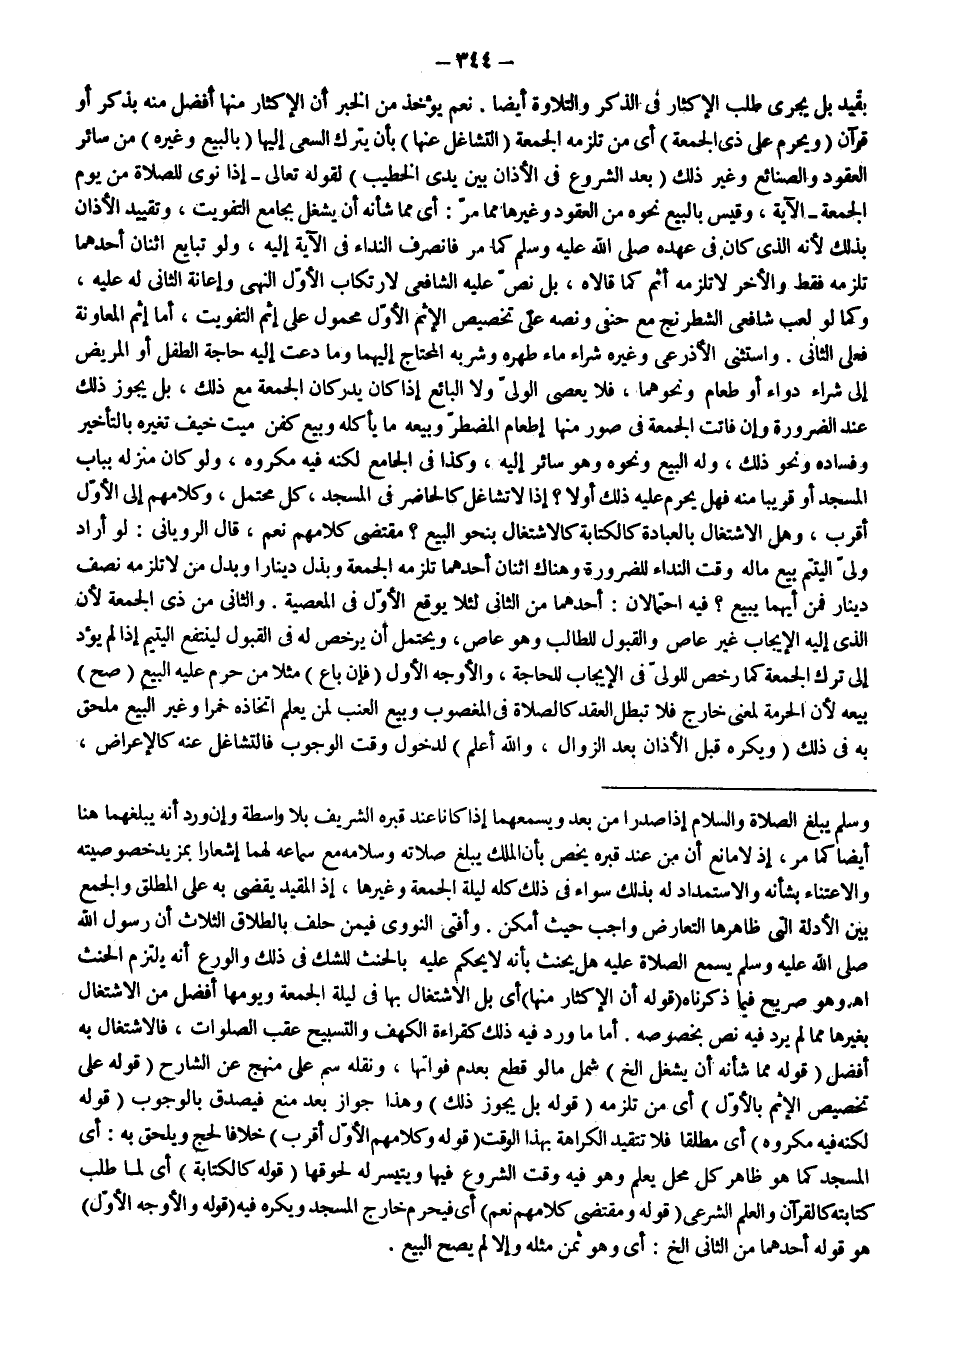 - ٣٤٤ -
بقيد بل يجرى طلب الإكثار فى الذكر والتلاوة أيضا . نعم يؤخذ من الخبر أن الإكثار منها أفضل منه بذكر أو
قرآن ( ويحرم على ذى الجمعة ) أى من تلزمه الجمعة ( التشاغل عنها ) بأن يترك السعى إليها ( بالبيع وغيره ) من سائر
العقود والصنائع وغير ذلك ( بعد الشروع فى الأذان بين يدى الخطيب ) لقوله تعالى ـ إذا نودى للصلاة من يوم
الجمعة ـ الآية ، وقيس بالبيع نحوه من العقود وغيرها مما مرّ : أى مما شأنه أن يشغل بجامع التفويت ، وتقييد الأذان
بذلك لأنه الذى كان فى عهده صلى الله عليه وسلم كما مر فانصرف النداء فى الآية إليه ، ولو تبايع اثنان أحدهما
تلزمه فقط والآخر لاتلزمه أثم كما قالاه ، بل نصّ عليه الشافعى لارتكاب الأوّل النهى وإعانة الثانى له عليه ،
وكما لو لعب شافعى الشطرنج مع حنفى ونصه علىّ تخصيص الإثم الأوّل محمول على إثم التفويت ، أما إثم المعاونة
فعلى الثانى . واستثنى الأذرعى وغيره شراء ماء طهره وشربه المحتاج إليهما وما دعت إليه حاجة الطفل أو المريض
إلى شراء دواء أو طعام ونحوهما ، فلا يعصى الولىّ ولا البائع إذا كان يدركان الجمعة مع ذلك ، بل يجوز ذلك
عند الضرورة وإن فاتت الجمعة فى صور منها إطعام المضطرّ وبيعه ما يأكله وبيع كفن ميت خيف تغيره بالتأخير
وفساده ونحو ذلك ، وله البيع ونحوه وهو سائر إليه ، وكذا فى الجامع لكنه فيه مكروه ، ولو كان منزله بباب
المسجد أو قريبا منه فهل يحرم عليه ذلك أولا ؟ إذا لاتشاغل كالحاضر فى المسجد ، كل محتمل ، وكلامهم إلى الأوّل
أقرب ، وهل الاشتغال بالعبادة كالكتابة كالاشتغال بنحو البيع ؟ مقتضى كلامهم نعم ، قال الرويانى : لو أراد
ولىّ اليتيم بيع ماله وقت النداء للضرورة وهناك اثنان أحدهما تلزمه الجمعة وبذل دينارا وبدل من لاتلزمه نصف
دينار فمن أيهما يبيع ؟ فيه احتمالان : أحدهما من الثانى لئلا يوقع الأوّل فى المعصية . والثانى من ذى الجمعة لأن
الذى إليه الإيجاب غير عاص والقبول للطالب وهو عاص، ويحتمل أن يرخص له فى القبول لينتفع اليتيم إذا لم يؤد
إلى ترك الجمعة كما رخص للولىّ فى الإيجاب للحاجة ، والأوجه الأول ( فإن باع ) مثلا من حرم عليه البيع ( صح )
بيعه لأن الحرمة لمعنى خارج فلا تبطل العقد كالصلاة فى المغصوب وبيع العنب لمن يعلم اتخاذه خمرا وغير البيع ملحق
به فى ذلك ( ويكره قبل الأذان بعد الزوال ، والله أعلم ) لدخول وقت الوجوب فالتشاغل عنه كالإعراض ،
وسلم يبلغ الصلاة والسلام إذا صدرا من بعد ويسمعهما إذا كانا عند قبره الشريف بلا واسطة وإن ورد أنه يبلغهما هنا
أيضا كما مر ، إذ لامانع أن من عند قبره يخص بأن الملك يبلغ صلاته وسلامه مع سماعه لهما إشعارا بمزيد خصوصيته
والاعتناء بشأنه والاستمداد له بذلك سواء فى ذلك كله ليلة الجمعة وغيرها ، إذ المقيد يقضى به على المطلق والجمع
بين الأدلة التى ظاهرها التعارض واجب حيث أمكن . وأفتى النووى فيمن حلف بالطلاق الثلاث أن رسول الله
صلى الله عليه وسلم يسمع الصلاة عليه هل يحنث بأنه لايحكم عليه بالحنث للشك فى ذلك والورع أنه يلتزم الحنث
اهـ وهو صريح فيما ذكرناه (قوله أن الإكثار منها) أى بل الاشتغال بها فى ليلة الجمعة ويومها أفضل من الاشتغال
بغيرها مما لم يرد فيه نص بخصوصه . أما ما ورد فيه ذلك كقراءة الكهف والتسبيح عقب الصلوات ، فالاشتغال به
أفضل ( قوله مما شأنه أن يشغل الخ ) شمل مالو قطع بعدم فواتها ، ونقله سم على منهج عن الشارح ( قوله على
تخصيص الإثم بالأوّل ) أى من تلزمه ( قوله بل يجوز ذلك ) وهذا جواز بعد منع فيصدق بالوجوب ( قوله
لكنه فيه مكروه ) أى مطلقا فلا تتقيد الكراهة بهذا الوقت ( قوله وكلامهم الأوّل أقرب ) خلافا لحج ويلحق به : أى
المسجد كما هو ظاهر كل محل يعلم وهو فيه وقت الشروع فيها ويتيسر له لحوقها ( قوله كالكتابة ) أى لما طلب
كتابته كالقرآن والعلم الشرعى ( قوله ومقتضى كلامهم نعم ) أى فيحرم خارج المسجد ويكره فيه (قوله والأوجه الأوّل)
هو قوله أحدهما من الثانى الخ : أى وهو ثمن مثله وإلا لم يصح البيع .